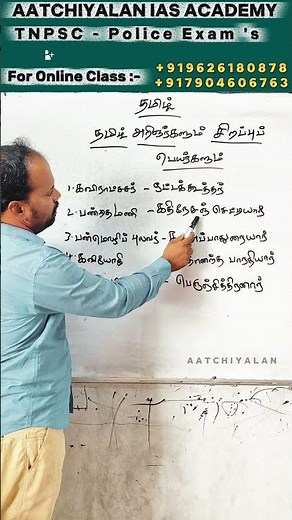 AATCHIYALAN IAS ACADEMY
TNPSC - Police Exam 's
For Online Class :-
+919626180878
+917904606763
தமிழ்
தமிழ் அறிஞர்களும் சிறப்புப்
பெயர்களும்
1. கவிராட்சசர் - ஒட்டக்கூத்தர்
2. பண்டிதமணி - கதிரேசஞ் செட்டியார்
3. பன்மொழிப் புலவர் - அப்பாதுரையார்
4. கவியோகி பாரதியார்
- பெருஞ்சித்திரனார்
AATCHIYALAN